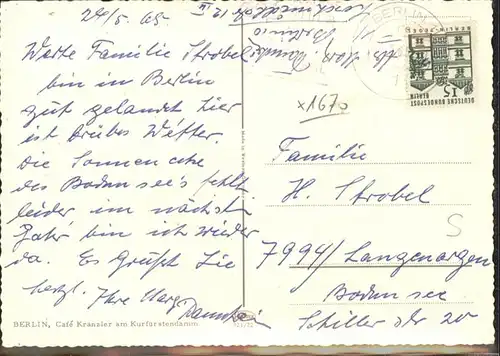 24/5. 65
Werte Familie Strobel
bin in Berlin
gut gelandet hier
ist trübes Wetter.
Die Sonnen
des Boden see's fehlt
leider im nächsten
Jahr bin ich wieder
da. Es Grüßt Sie
herzl. Ihre Marg
BERLIN, Café Kranzler am Kurfürstendamm
Berlin
x1670
15
DEUTSCHE BUNDESPOST
BERLIN
BERLIN-TEGEL
BERLIN
Familie
H. Strobel
7994/ Langenargen
Boden see
Schiller str 20
S